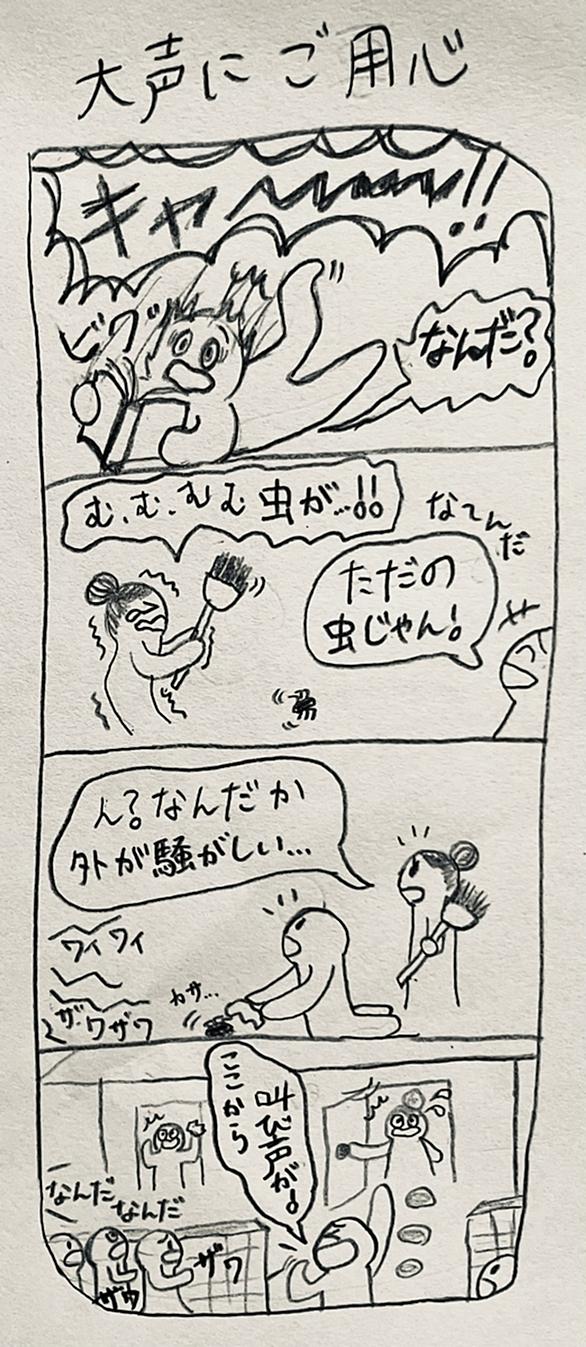 大声にご用心
キャーーー!!
ビクッ
なんだ?
む、む、むむ虫が…!!
なーんだ
ただの
虫じゃん!
ん?なんだか
外が騒がしい…
ワイワイ
ザワザワ
カサ…
ここから
叫び声が!
なんだ
なんだ
ザワ
ザワ